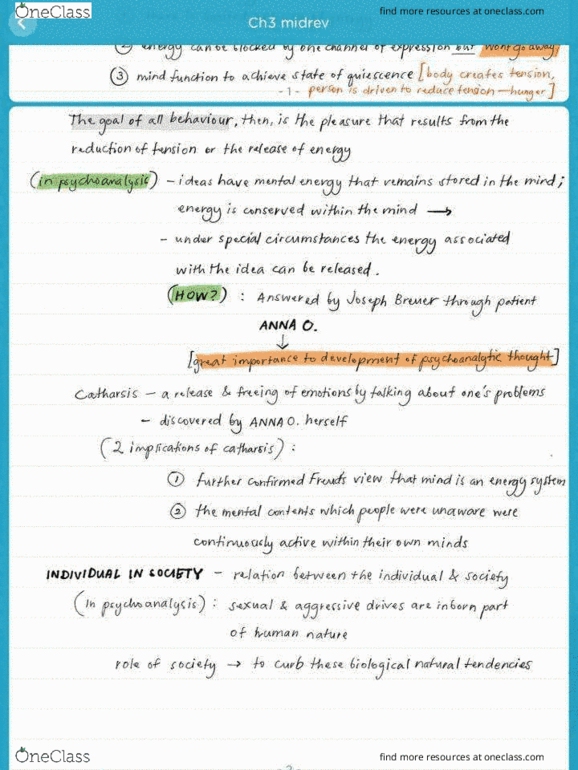 OneClass
find more resources at oneclass.com
Ch3 midrev
② energy can be blocked by one channel of expression but wont go away,
③ mind function to achieve state of quiescence [body creates tension,
-1- person is driven to reduce tension — hunger]
The goal of all behaviour, then, is the pleasure that results from the
reduction of tension or the release of energy
(in psychoanalysis) - ideas have mental energy that remains stored in the mind;
energy is conserved within the mind →
- under special circumstances the energy associated
with the idea can be released.
(HOW?) : Answered by Joseph Breuer through patient
ANNA O.
↓
[great importance to development of psychoanalytic thought]
Catharsis - a release & freeing of emotions by talking about one's problems
- discovered by ANNA O. herself
(2 implications of catharsis) :
① further confirmed Freud's view that mind is an energy system
② the mental contents which people were unaware were
continuously active within their own minds
INDIVIDUAL IN SOCIETY - relation between the individual & society
(In psychoanalysis) : sexual & aggressive drives are inborn part
of human nature
role of society → to curb these biological natural tendencies
OneClass
find more resources at oneclass.com
-2-